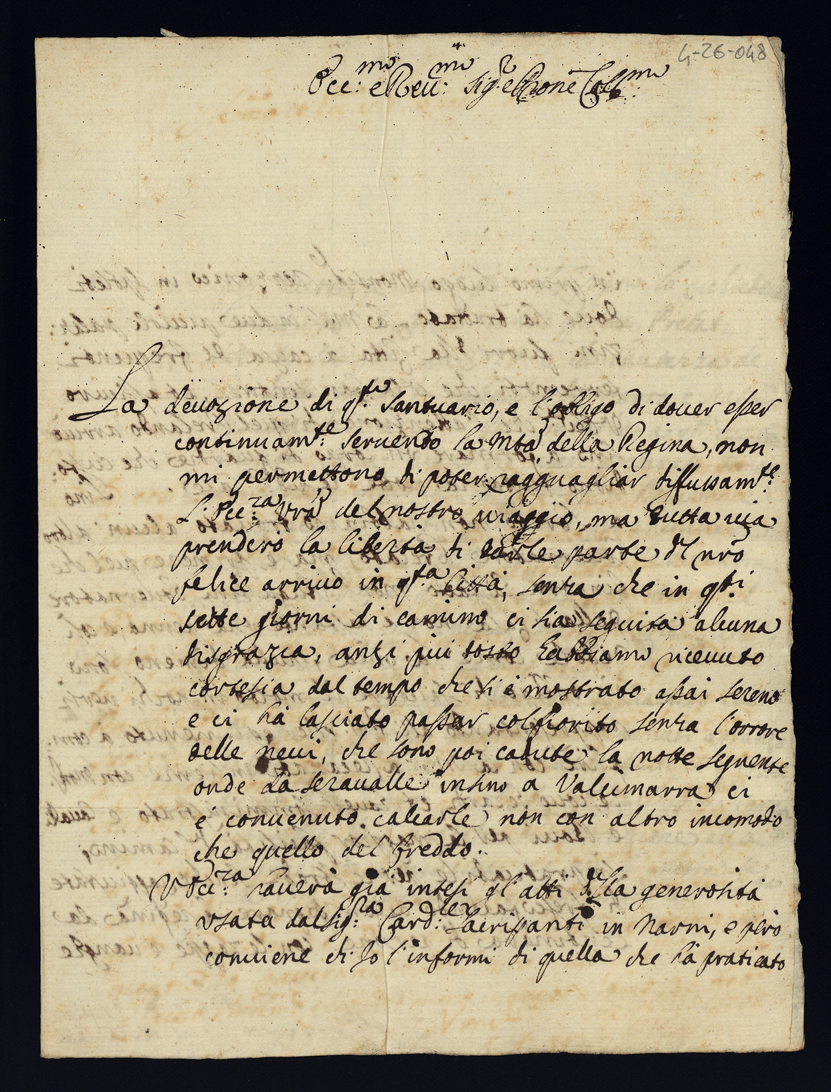 4-26-048
Ecc:mo e Reu:mo Sig.r e Prone Coll:mo
La deuozione di q.sto Santuario, e l'obligo di douer esser
continuam.te seruendo la Mtà della Regina, non
mi permettono di poter ragguagliar diffusam.te
l'Ecc:za Vrã del nostro uiaggio, ma tutta uia
prenderò la libertà di darle parte del nrõ
felice arriuo in q.ta Città, senza che in q.sti
sette giorni di camino ci sia seguita alcuna
disgrazia, anzi più tosto habbiamo riceuuto
cortesia dal tempo che si è mostrato assai sereno
e ci hà lasciato passar colfiorito senza l'orrore
delle neui, che sono poi cadute la notte seguente
onde da Seraualle insino a Valcimarra ci
è conuenuto calcarle non con altro incomodo
che quello del freddo.
V Ecc:za hauerà già intesi gl'atti della generosità
usata dal Sig.r Card:le Sacripanti in Narni, e però
conuiene ch'Io l'informi di quella che hà praticato